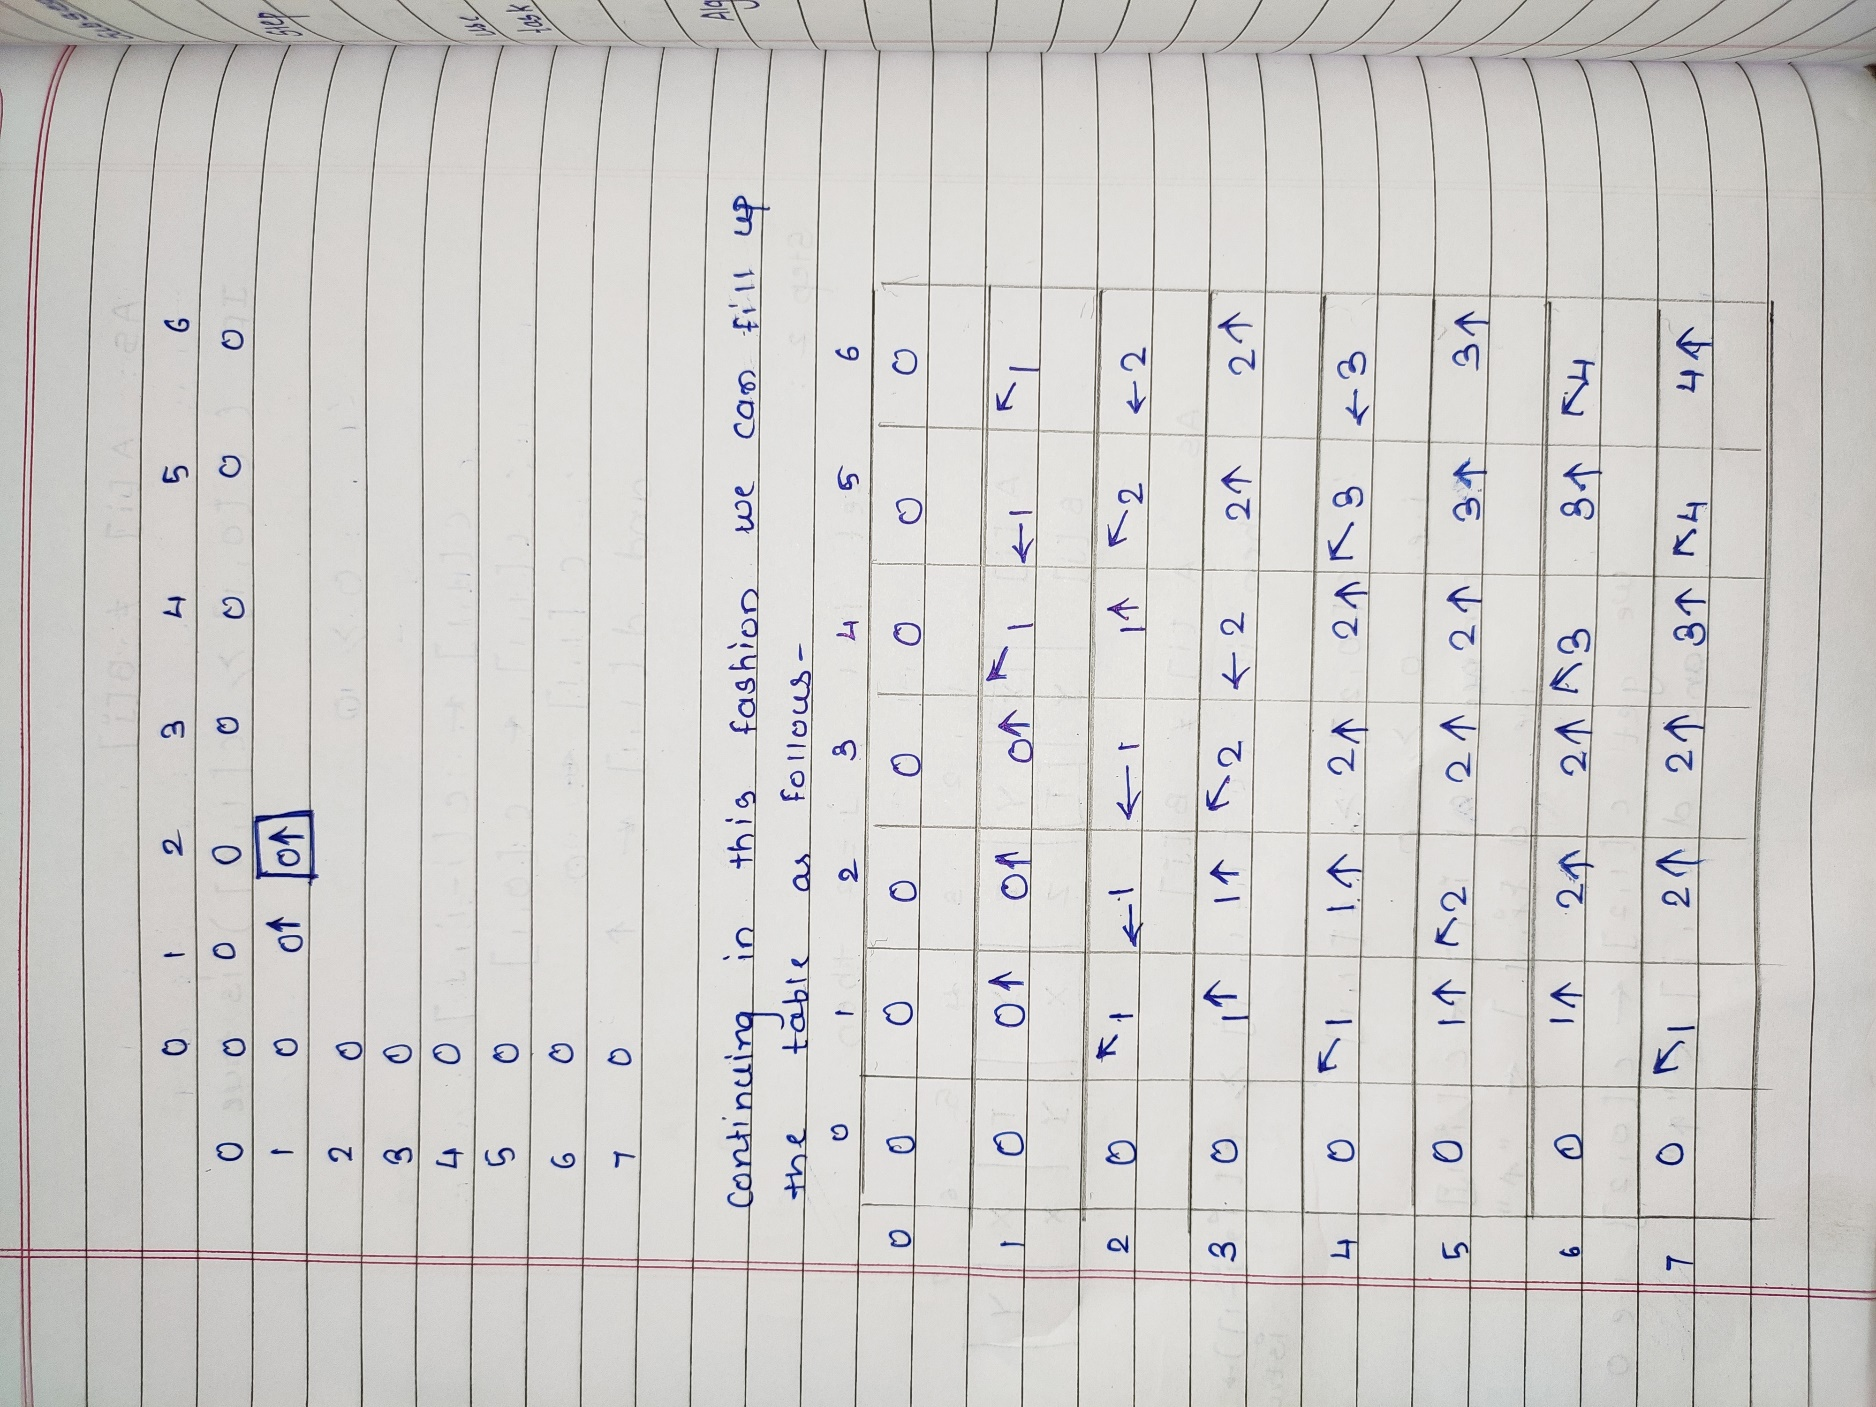 0 1 2 3 4 5 6
0 0 0 0 0 0 0 0
1 0 0↑ 0↑
2 0
3 0
4 0
5 0
6 0
7 0
Continuing in this fashion we can fill up
the table as follous-
0 1 2 3 4 5 6
0 0 0 0 0 0 0 0
1 0 0↑ 0↑ 0↑ ↖1 ←1 ↖1
2 0 ↖1 ←1 ←1 1↑ ↖2 ←2
3 0 1↑ 1↑ ↖2 ←2 2↑ 2↑
4 0 ↖1 1↑ 2↑ 2↑ ↖3 ←3
5 0 1↑ ↖2 2↑ 2↑ 3↑ 3↑
6 0 1↑ 2↑ 2↑ ↖3 3↑ ↖4
7 0 ↖1 2↑ 2↑ 3↑ ↖4 4↑